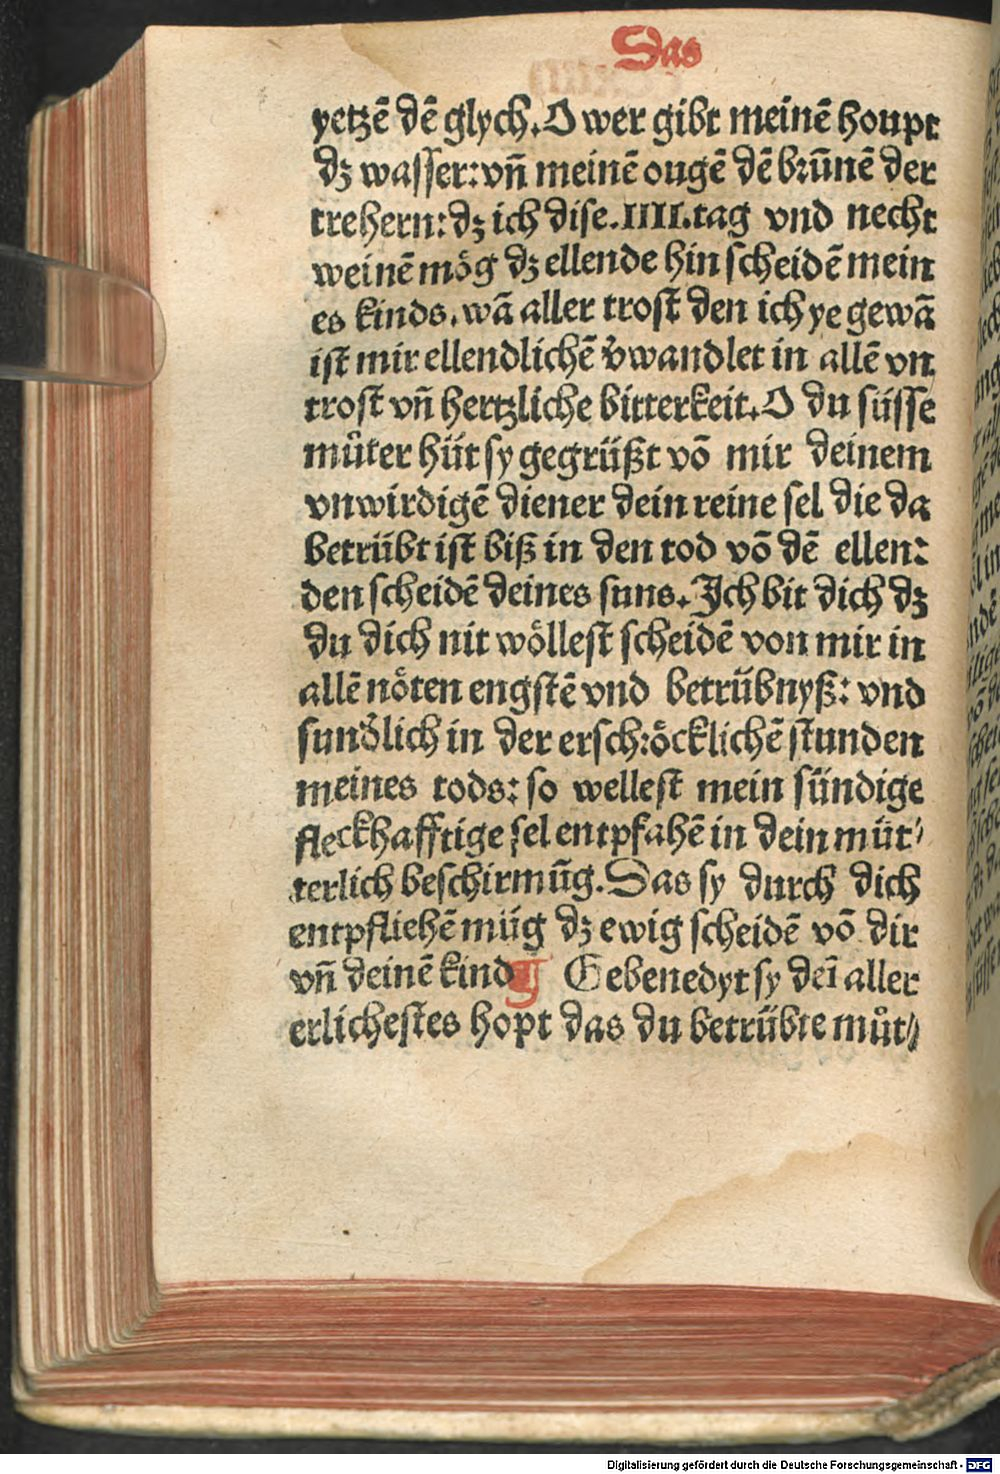 Das
yetzē dē glych. O wer gibt meinē houpt
dꝫ wasser: vn̄ meinē ougē dē brūnē der
trehern: dꝫ ich dise .IIII. tag vnd necht
weinē mög dꝫ ellende hin scheidē mein
es kinds. wā aller trost den ich ye gewā
ist mir ellendlichē v̓wandlet in allē vn
trost vn̄ hertzliche bitterkeit. O du süsse
můter hüt sy gegrüßt vō mir deinem
vnwirdigē diener dein reine sel die da
betrübt ist biß in den tod vō dē ellen:
den scheidē deines suns. Ich bit dich dꝫ
du dich nit wöllest scheidē von mir in
allē nöten engstē vnd betrübnyß: vnd
sund̓lich in der erschröcklichē stunden
meines tods: so wellest mein sündige
fleckhafftige sel entpfahē in dein müt⸗
terlich beschirmūg. Das sy durch dich
entpfliehē müg dꝫ ewig scheidē vō dir
vn̄ deinē kind ¶ Gebenedyt sy deī aller
erlichestes hopt das du betrübte můt⸗
Digitalisierung gefördert durch die Deutsche Forschungsgemeinschaft - DFG